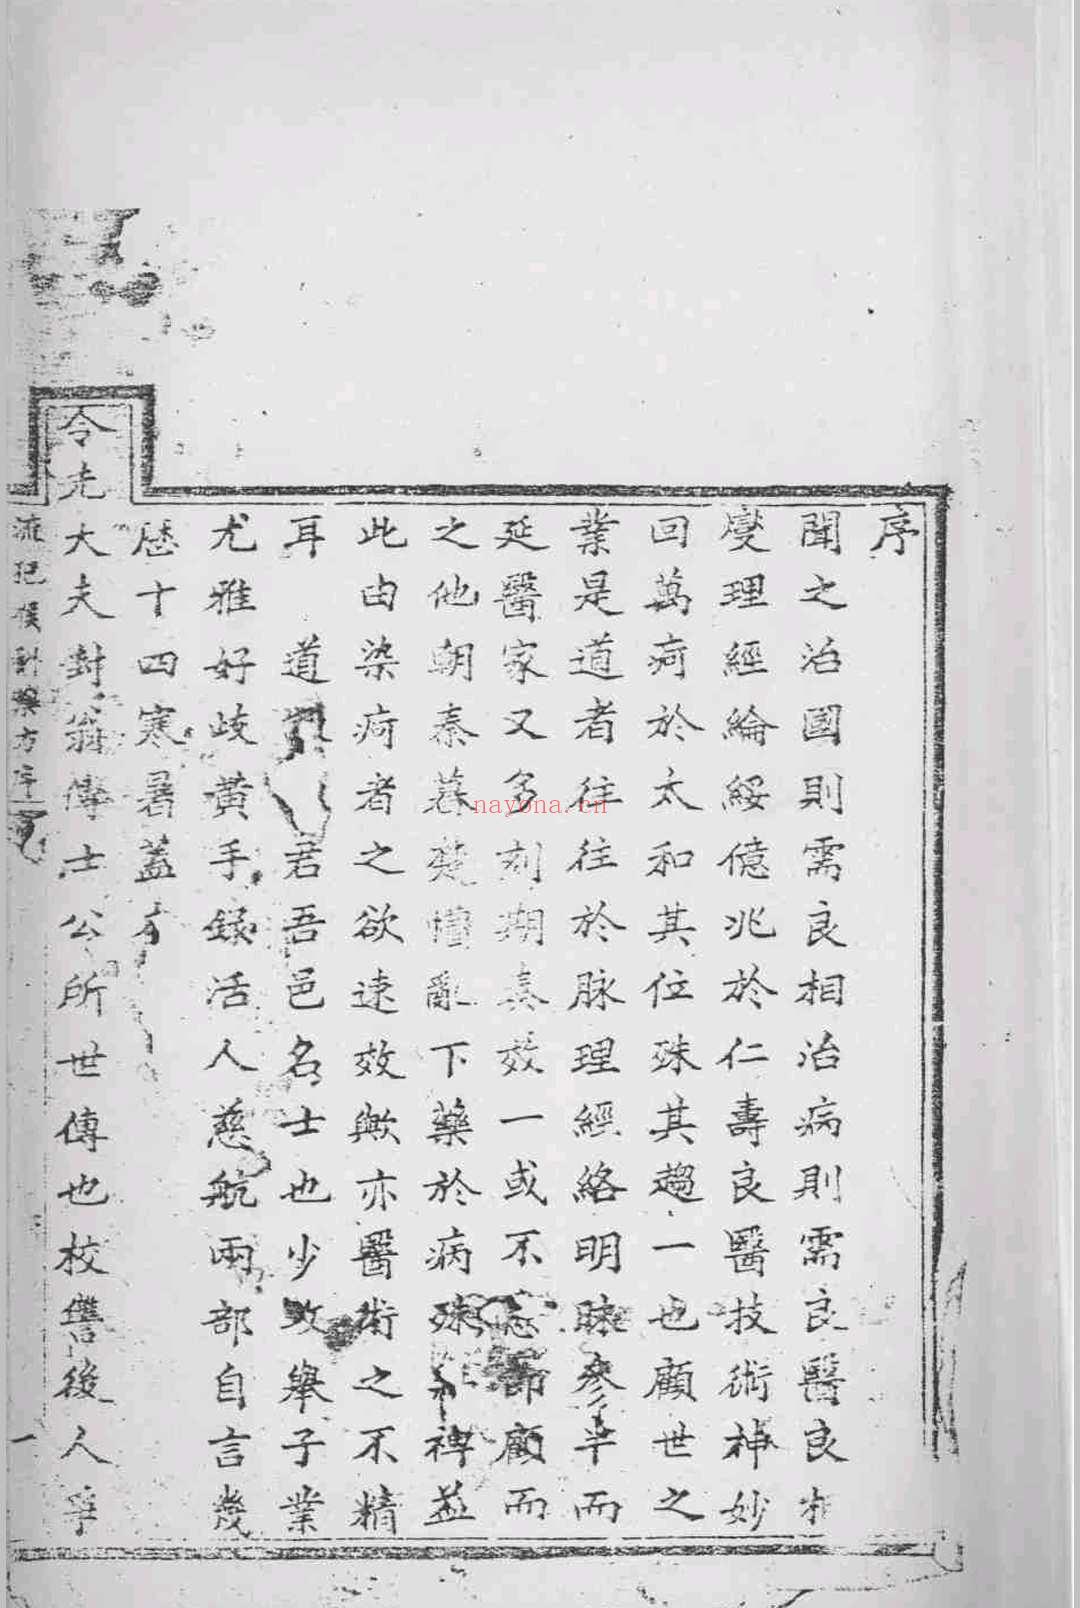 序
聞之治國則需良相治病則需良醫良相
燮理經綸綏億兆於仁壽良醫技術神妙
回萬疴於太和其位殊其趨一也顧世之
業是道者往往於脉理經絡明昧參半而
延醫家又多刻期奏效一或不
顧而
之他朝秦暮楚懵亂下藥於病殊
裨益
此由染疴者之欲速效歟亦醫術之不精
耳 道
君吾邑名士也少攻舉子業
尤雅好歧黃手錄活人慈航兩部自言幾
歷十四寒暑蓋
令先
大夫封翁傳士公所世傳也校讐後人爭
流
方序
一
nayona.cn